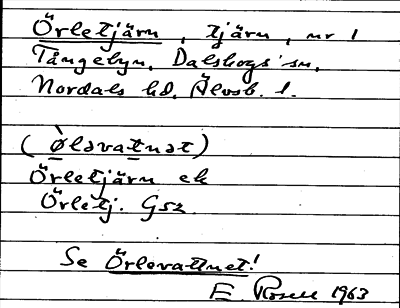 Örletjärn, tjärn, nr 1
Tångebyn, Dalskogs sn,
Nordals hd, Älvsb. l.
(Ø̀lǝvatnǝt)
Örletjärn ek
Örletj. Gsz
Se Örlevattnet!
E. Rosell 1963